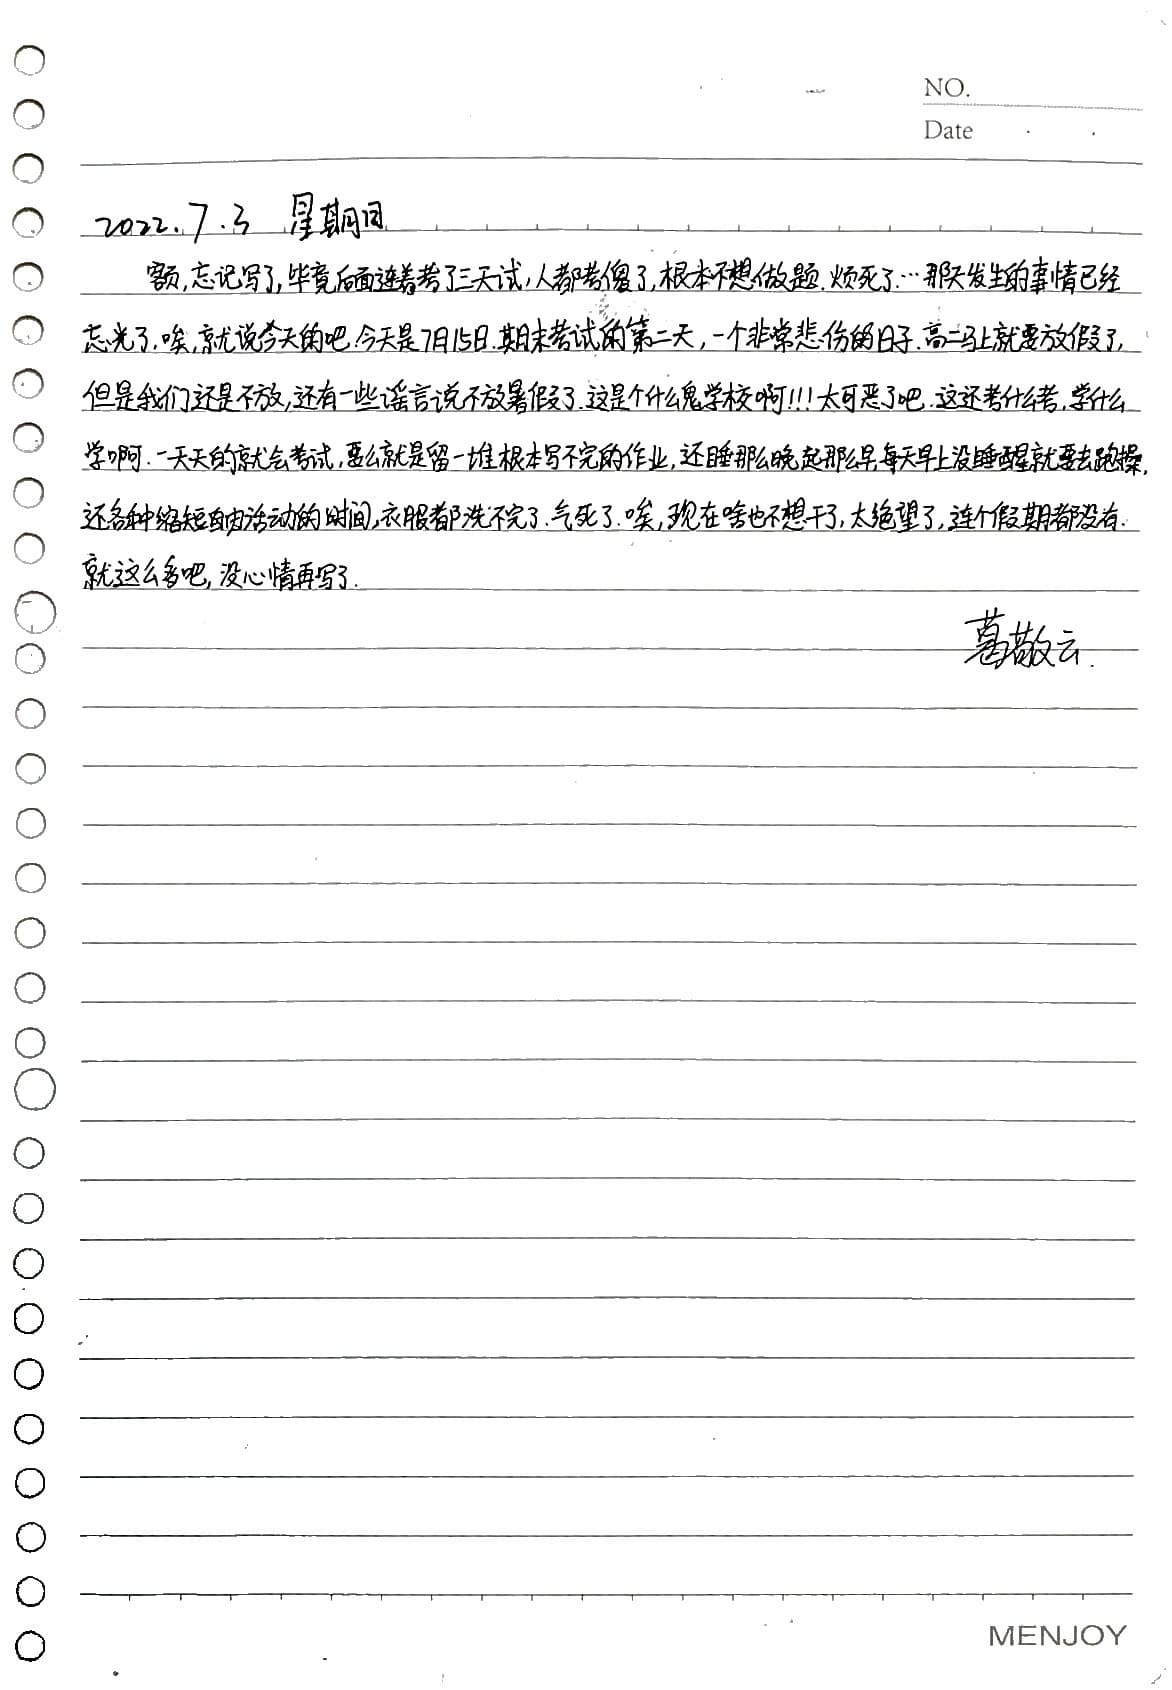 NO.
Date
2022.7.3 星期日
额,忘记写了,毕竟后面连着考了三天试,人都考傻了,根本不想做题.烦死了…那天发生的事情已经
忘光了.唉,就说今天的吧.今天是7月15日.期末考试的第二天,一个非常悲伤的日子.高二马上就要放假了,
但是我们还是不放,还有一些谣言说不放暑假了.这是个什么鬼学校啊!!!太可恶了吧.这还考什么考,学什么
学啊.一天天的就会考试,要么就是留一堆根本写不完的作业,还睡那么晚起那么早,每天早上没睡醒就要去跑操,
还各种缩短自由活动的时间,衣服都洗不完了.气死了.唉,现在啥也不想干了,太绝望了,连个假期都没有.
就这么多吧,没心情再写了.
葛敬云.
MENJOY